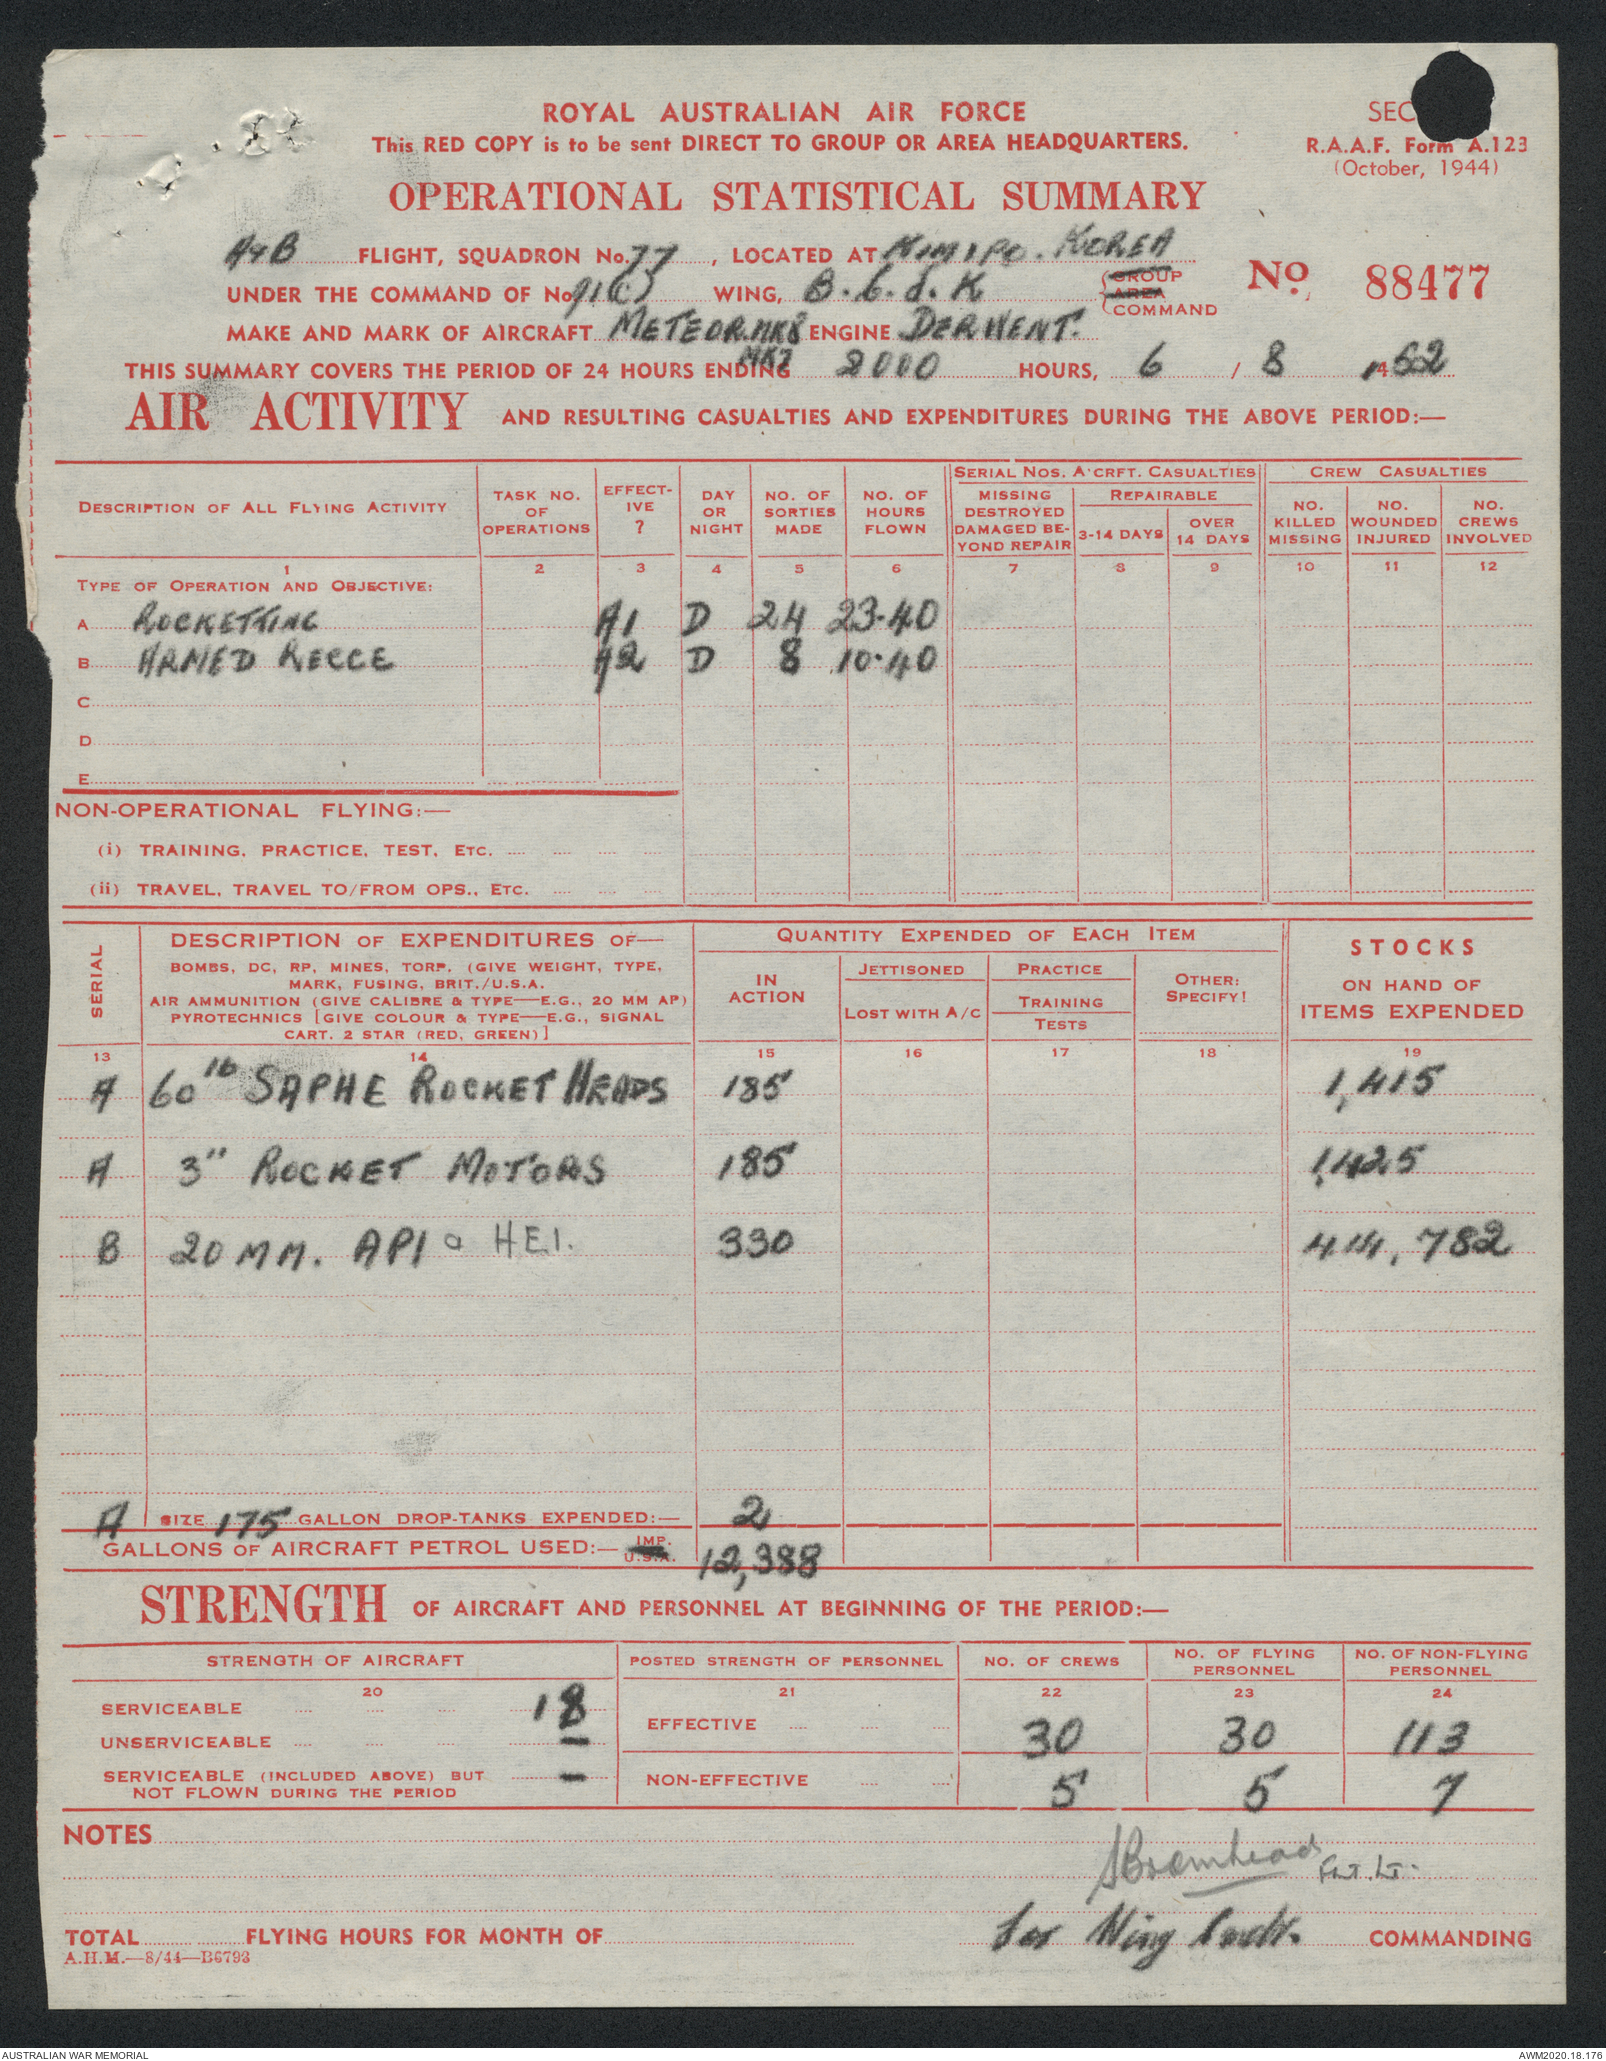 ROYAL AUSTRALIAN AIR FORCE
This RED COPY is to be sent DIRECT TO GROUP OR AREA HEADQUARTERS.
SEC
R.A.A.F. Form A.123
(October, 1944)
OPERATIONAL STATISTICAL SUMMARY
A+B FLIGHT, SQUADRON No. 77, LOCATED AT KIMIPO. KOREA
UNDER THE COMMAND OF No 91(C) WING, B.C.d.K GROUP AREA COMMAND
No. 88477
MAKE AND MARK OF AIRCRAFT METEOR.MK8 ENGINE DERWENT.
MK7
THIS SUMMARY COVERS THE PERIOD OF 24 HOURS ENDING 2000 HOURS, 6 / 8 /1952
AIR ACTIVITY AND RESULTING CASUALTIES AND EXPENDITURES DURING THE ABOVE PERIOD:—
DESCRIPTION OF ALL FLYING ACTIVITY
TASK NO. OF OPERATIONS
EFFECT-IVE ?
DAY OR NIGHT
NO. OF SORTIES MADE
NO. OF HOURS FLOWN
SERIAL NOS. A'CRFT. CASUALTIES
MISSING DESTROYED DAMAGED BE-YOND REPAIR
REPAIRABLE
3-14 DAYS
OVER 14 DAYS
CREW CASUALTIES
NO. KILLED MISSING
NO. WOUNDED INJURED
NO. CREWS INVOLVED
1 2 3 4 5 6 7 8 9 10 11 12
TYPE OF OPERATION AND OBJECTIVE:
A ROCKETTING A1 D 24 23.40
B ARMED RECCE A2 D 8 10.40
C
D
E
NON-OPERATIONAL FLYING:—
(i) TRAINING, PRACTICE, TEST, ETC.
(ii) TRAVEL, TRAVEL TO/FROM OPS., ETC.
SERIAL
DESCRIPTION OF EXPENDITURES OF—
BOMBS, DC, RP, MINES, TORP. (GIVE WEIGHT, TYPE,
MARK, FUSING, BRIT./U.S.A.
AIR AMMUNITION (GIVE CALIBRE & TYPE—E.G., 20 MM AP)
PYROTECHNICS [GIVE COLOUR & TYPE—E.G., SIGNAL
CART. 2 STAR (RED, GREEN)]
QUANTITY EXPENDED OF EACH ITEM
IN ACTION
JETTISONED
LOST WITH A/C
PRACTICE
TRAINING
TESTS
OTHER: SPECIFY!
STOCKS
ON HAND OF
ITEMS EXPENDED
13 14 15 16 17 18 19
A 60 lb SAPHE ROCKET HEADS 185 1,415
A 3" ROCKET MOTORS 185 1,425
B 20 MM. API & HEI. 330 414,782
A SIZE 175 GALLON DROP-TANKS EXPENDED:— 2
GALLONS OF AIRCRAFT PETROL USED:— IMP. U.S.A. 12,388
STRENGTH OF AIRCRAFT AND PERSONNEL AT BEGINNING OF THE PERIOD:—
STRENGTH OF AIRCRAFT
POSTED STRENGTH OF PERSONNEL
NO. OF CREWS
NO. OF FLYING PERSONNEL
NO. OF NON-FLYING PERSONNEL
20 21 22 23 24
SERVICEABLE 18
UNSERVICEABLE —
SERVICEABLE (INCLUDED ABOVE) BUT
NOT FLOWN DURING THE PERIOD —
EFFECTIVE 30 30 113
NON-EFFECTIVE 5 5 7
NOTES
SBromhead FLT.LT.
TOTAL FLYING HOURS FOR MONTH OF
for Wing Comdr. COMMANDING
A.H.M.—8/44—B6793
AUSTRALIAN WAR MEMORIAL
AWM2020.18.176